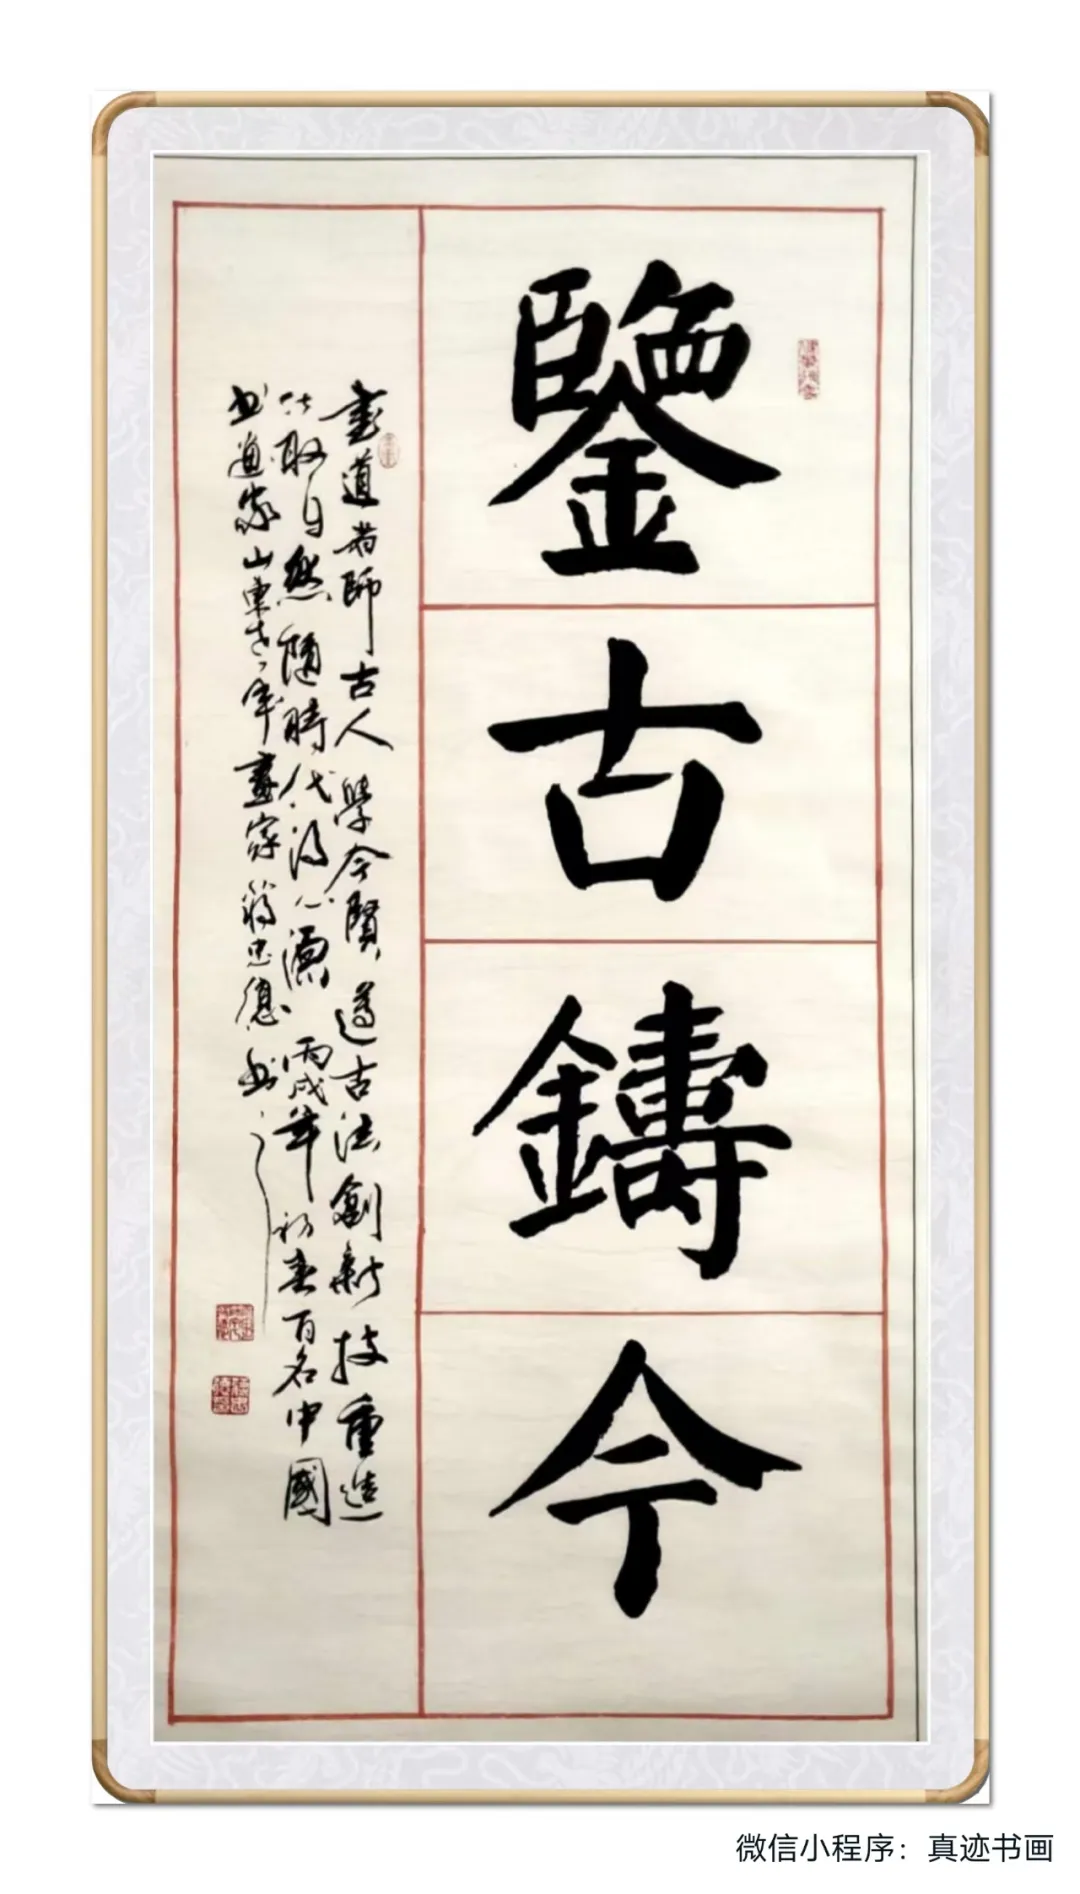 鑒古鑄今
書道者師古人學今賢遵古法創新技重造
化取自然隨時代得心源丙戌年初春百名中國
书道家山東老年畫家蔣忠德书
微信小程序：真迹书画